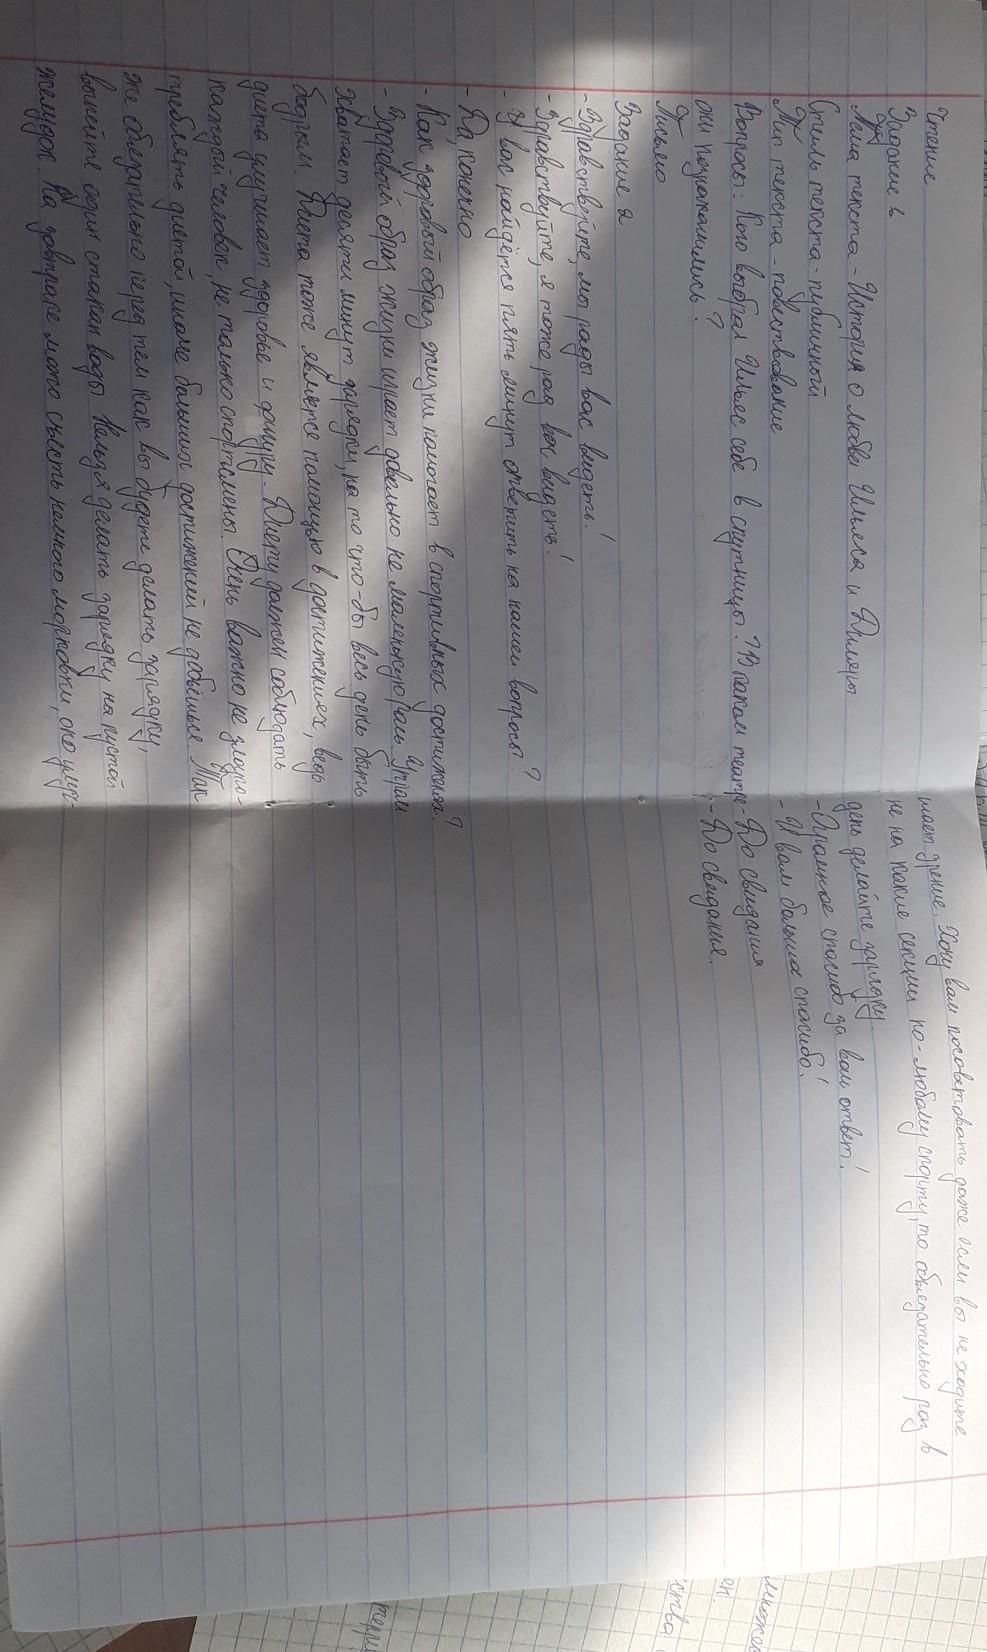 Чтение
Задание 1
Тема текста - История о любви Ильяса и Диляры
Стиль текста - публичный
Тип текста - повествование
Вопросы: Кого выбрал Ильяс себе в спутницы? В каком театре
они познакомились?
Письмо
Задание 2
- Здравствуйте, мы рады вас видеть!
- Здравствуйте, я тоже рад вас видеть!
- У вас найдётся пять минут ответить на нашеи вопросы?
- Да, конечно
- Как здоровый образ жизни помогает в спортивных достижениях?
- Здоровый образ жизни играет довольно не маленькую роль. Утром
хватает десяти минут зарядки, на то что-бы весь день быть
бодрым. Диета тоже является помощью в достижениях, ведь
диета улучшает здоровье и фигуру. Диету должен соблюдать
каждый человек, не только спортсмены. Очень важно не злоупо-
треблять диетой, иначе больших достижений не добьёшься. Так
же обязательно перед тем как вы будете делать зарядку,
выпейте один стакан воды. Нельзя делать зарядку на пустой
желудок. На завтраке можно съесть немного морковки, оно улуч-
шает зрение. Хочу вам посоветовать даже если вы не ходите
не на какие секции по-любому спорту, то обязательно раз в
день делайте зарядку.
- Огромное спасибо за вам ответ!
- И вам большое спасибо!
- До свидания
- До свидания.